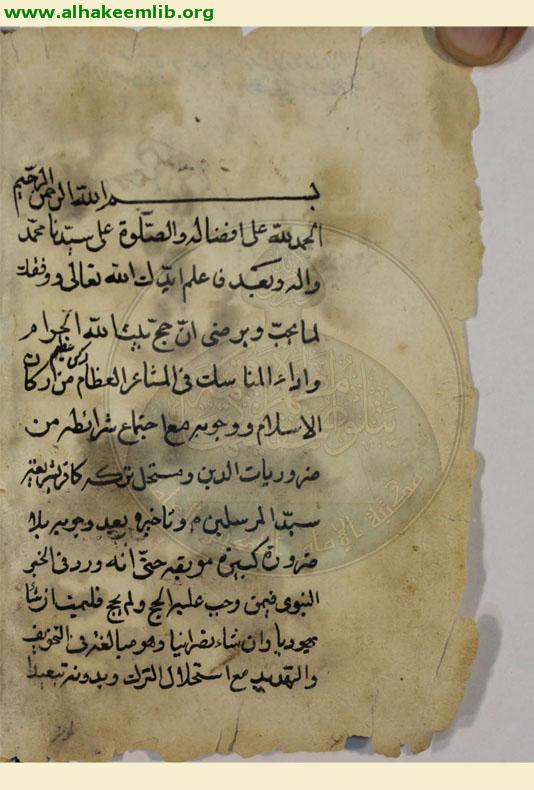 www.alhakeemlib.org
بسم الله الرحمن الرحيم
الحمد لله على افضاله والصلوة على سيدنا محمد
واله وبعد فاعلم ايدك الله تعالى ووفقك
لما يحب ويرضى ان حج بيت الله الحرام
واداء المناسك في المشاعر العظام ركن عظيم من اركان
الاسلام ووجوبه مع اجتماع شرائطه من
ضروريات الدين ومستحل تركه كافر بشريعة
سيد المرسلين م وتاخيره بعد وجوبه بلا
ضرورة كبيرة موبقه حتى انه ورد في الخبر
النبوى فيمن وجب عليه الحج ولم يحج فليمت ان شأ
يهوديا وان شاء نصرانيا وهو مبالغة في التخويف
والتهديد مع استحلال الترك وبدونه تبعيدا